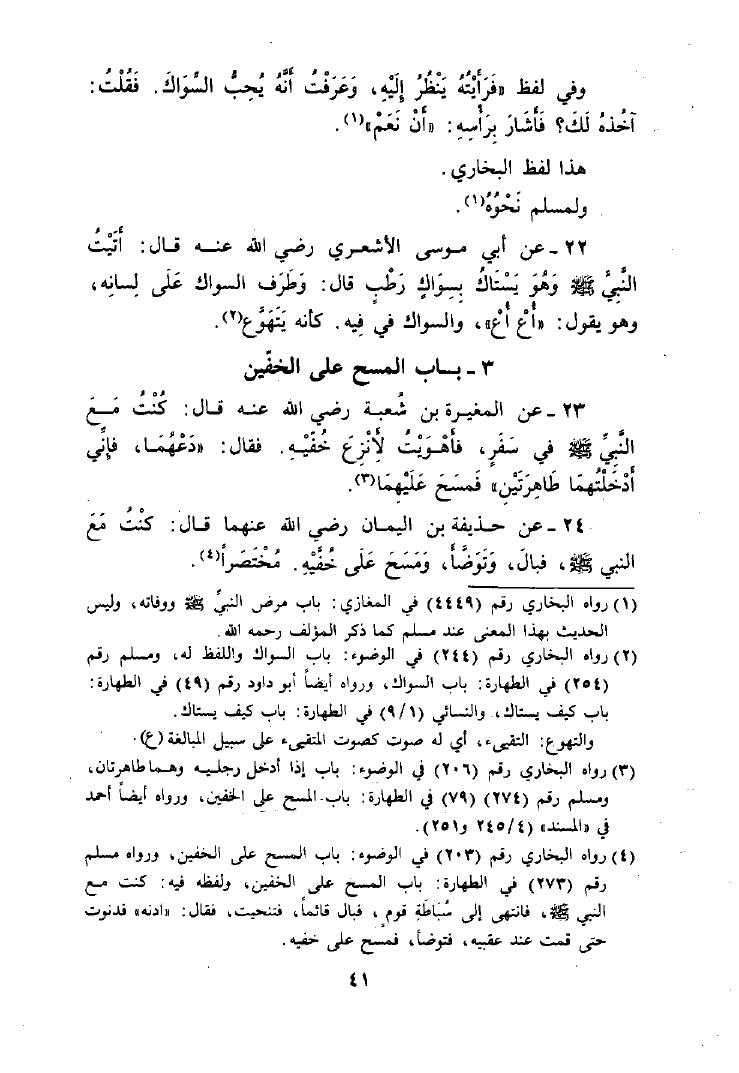 وفي لفظ «فَرَأَيْتُهُ يَنْظُرُ إِلَيْهِ، وَعَرَفْتُ أَنَّهُ يُحِبُّ السِّوَاكَ. فَقُلْتُ:
آخُذهُ لَكَ؟ فَأَشَارَ بِرَأْسِهِ: «أَنْ نَعَمْ»(١).
هذا لفظ البخاري.
ولمسلم نَحْوُهُ(١).
٢٢ - عن أبي موسى الأشعري رضي الله عنه قال: أَتَيْتُ
النَّبِيَّ ﷺ وَهُوَ يَسْتَاكُ بِسِوَاكٍ رَطْبٍ قال: وَطَرَف السواك عَلَى لِسانِه،
وهو يقول: «أُعْ أُعْ»، والسواك في فِيه. كأنه يَتَهَوَّع(٢).
٣ - بــاب المسح على الخفَّين
٢٣ - عن المغيرة بن شُعبة رضي الله عنه قال: كُنْتُ مَعَ
النَّبِيِّ ﷺ في سَفَرٍ، فأَهْوَيْتُ لأَنْزِعَ خُفَّيْهِ. فقال: «دَعْهُمَا، فإنِّي
أَدْخَلْتُهُمَا طَاهِرَتَيْنِ» فَمسَحَ عَلَيْهِمَا(٣).
٢٤ - عن حذيفة بن اليمان رضي الله عنهما قال: كنْتُ مَعَ
النبي ﷺ، فبالَ، وَتَوَضَّأَ، وَمَسَحَ عَلَى خُفَّيْهِ. مُخْتَصَراً(٤).
(١) رواه البخاري رقم (٤٤٤٩) في المغازي: باب مرض النبيِّ ﷺ ووفاته، وليس
الحديث بهذا المعنى عند مسلم كما ذكر المؤلف رحمه الله.
(٢) رواه البخاري رقم (٢٤٤) في الوضوء: باب السواك واللفظ له، ومسلم رقم
(٢٥٤) في الطهارة: باب السواك، ورواه أيضاً أبو داود رقم (٤٩) في الطهارة:
باب كيف يستاك، والنسائي (٩/١) في الطهارة: باب كيف يستاك.
والتهوع: التقيىء، أي له صوت كصوت المتقيىء على سبيل المبالغة (ع).
(٣) رواه البخاري رقم (٢٠٦) في الوضوء: باب إذا أدخل رجليه وهما طاهرتان،
ومسلم رقم (٢٧٤) (٧٩) في الطهارة: باب المسح على الخفين، ورواه أيضاً أحمد
في «المسند» (٢٤٥/٤ و٢٥١).
(٤) رواه البخاري رقم (٢٠٣) في الوضوء: باب المسح على الخفين، ورواه مسلم
رقم (٢٧٣) في الطهارة: باب المسح على الخفين، ولفظه فيه: كنت مع
النبي ﷺ، فانتهى إلى سُبَاطَةِ قومٍ، فبال قائماً، فتنحيت، فقال: «ادنه» فدنوت
حتى قمت عند عقبيه، فتوضأ، فمسح على خفيه.
٤١